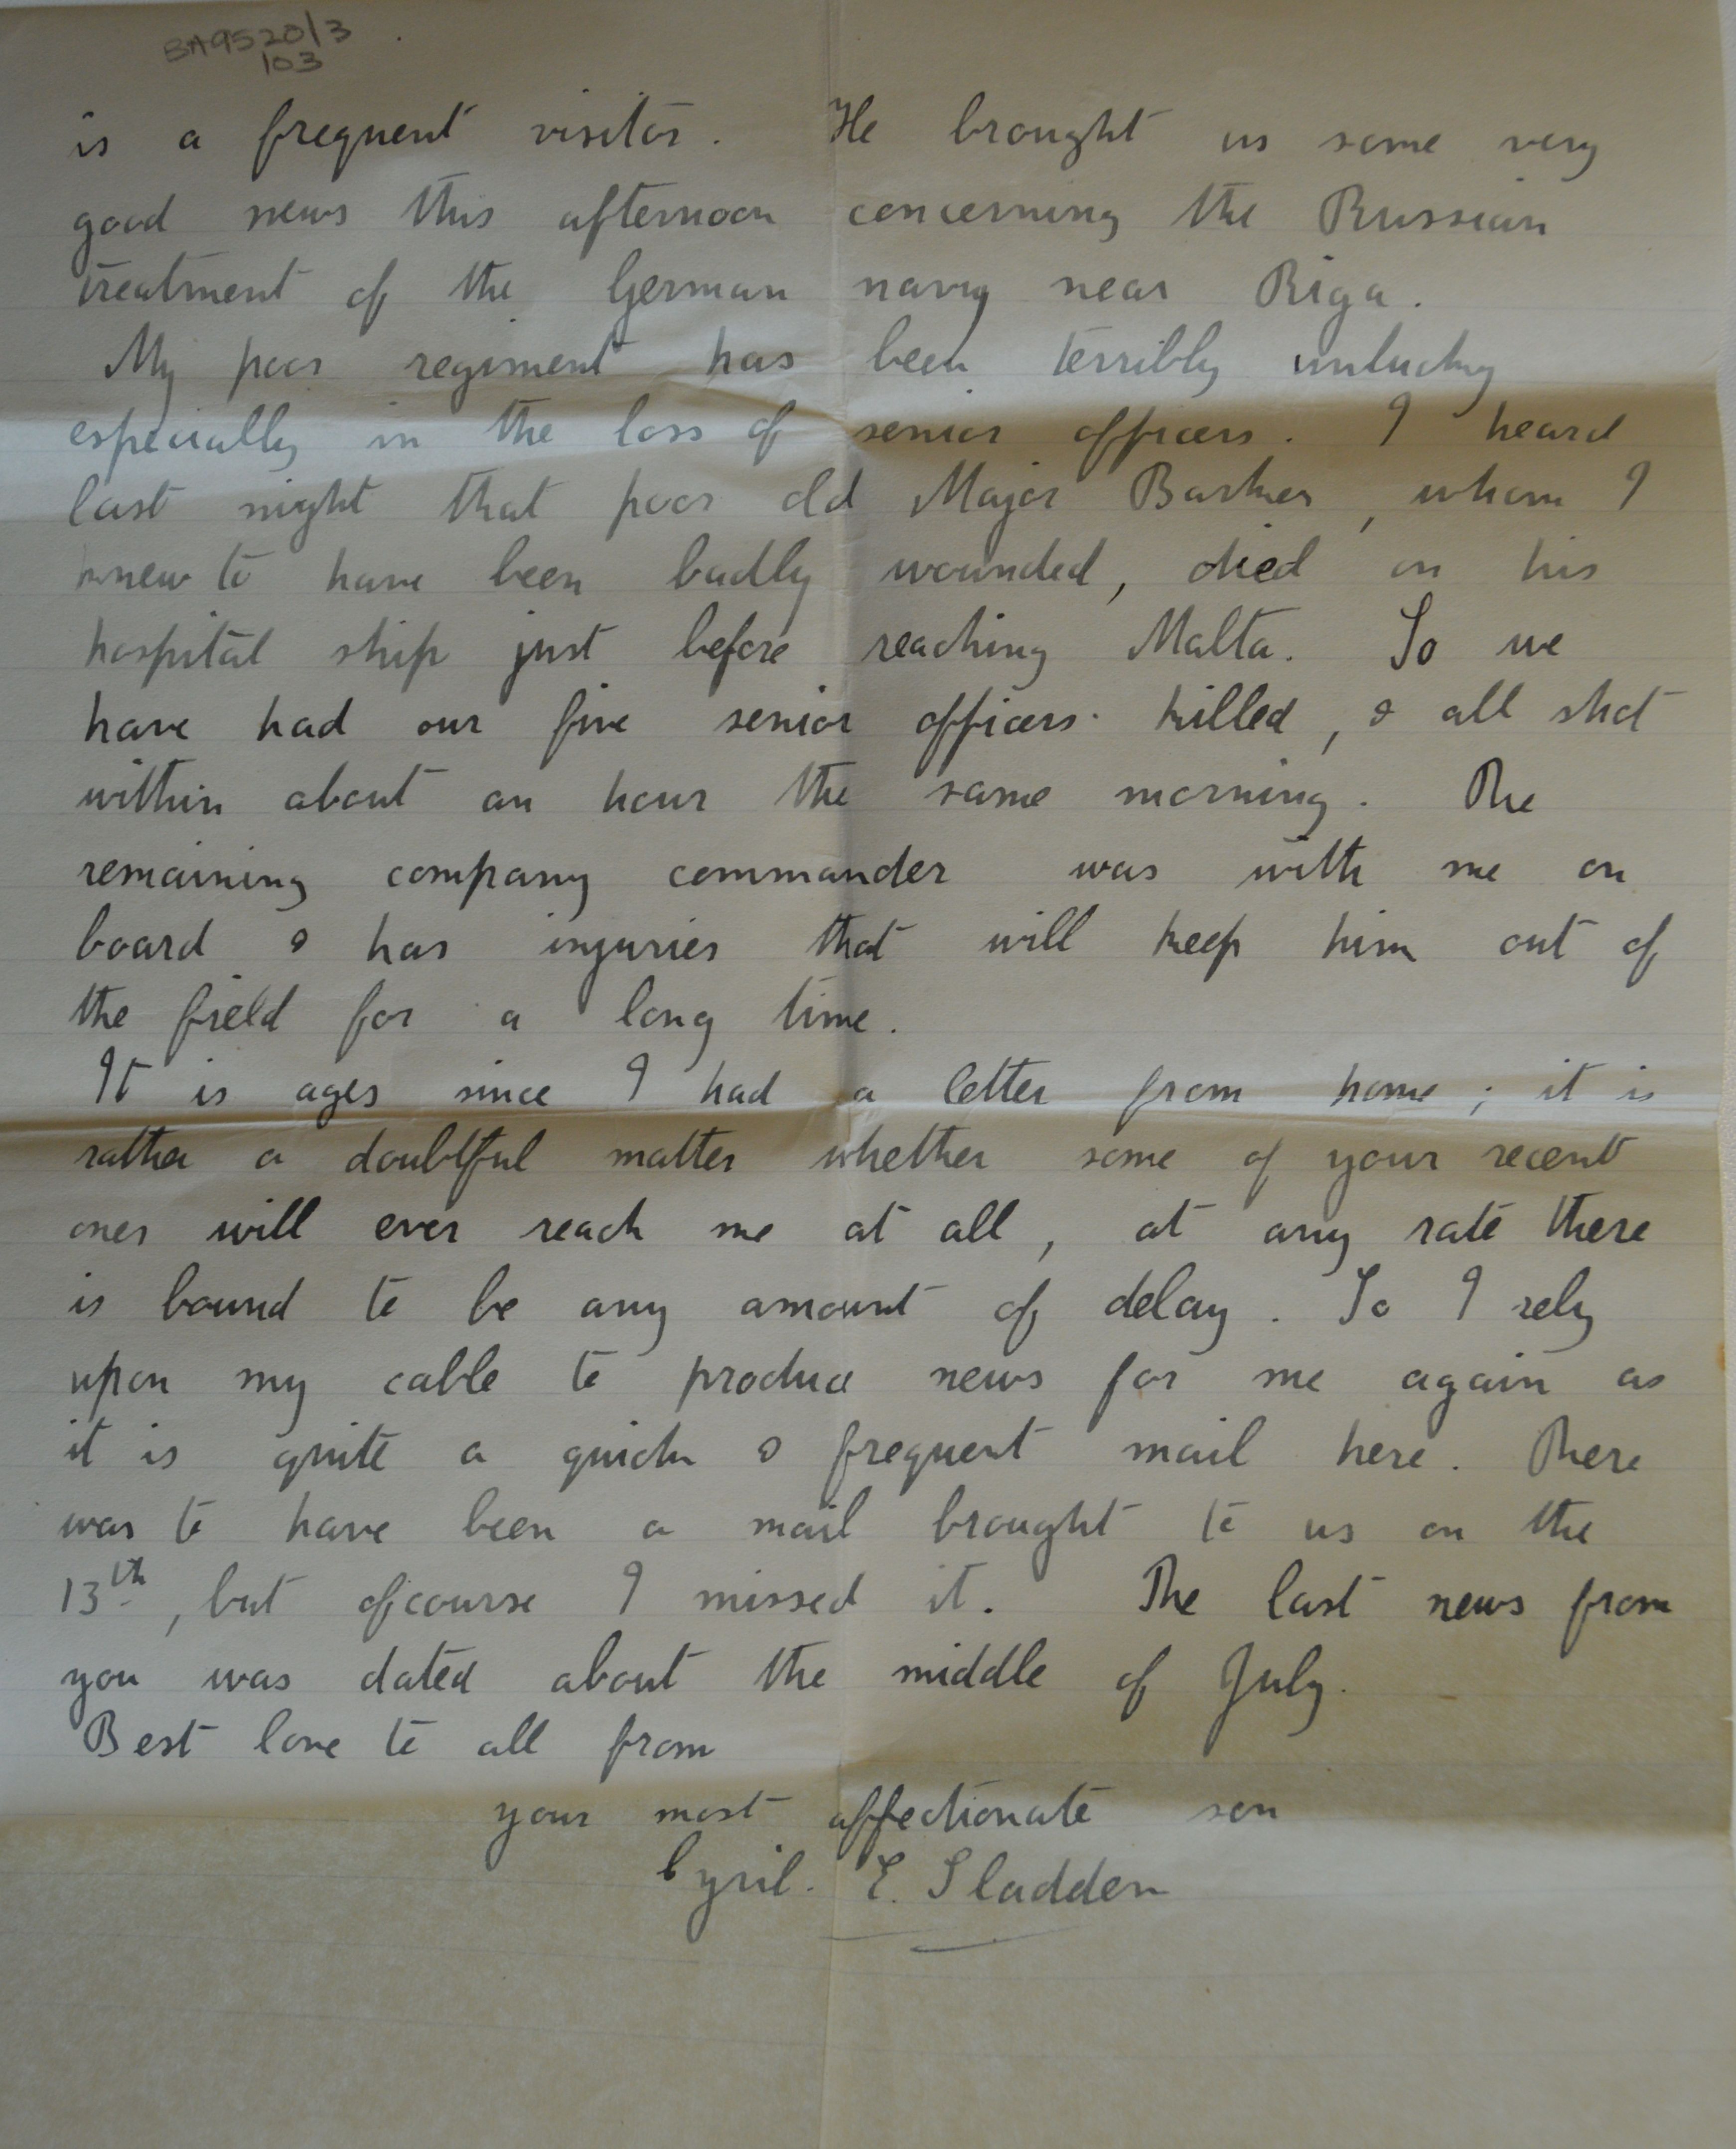 BA9520/3
103
is a frequent visitor. He brought us some very
good news this afternoon concerning the Russian
treatment of the German navy near Riga.
My poor regiment has been terribly unlucky
especially in the loss of senior officers. I heard
last night that poor old Major Barker, whom I
knew to have been badly wounded, died on his
hospital ship just before reaching Malta. So we
have had our five senior officers killed, & all shot
within about an hour the same morning. The
remaining company commander was with me on
board & has injuries that will keep him out of
the field for a long time.
It is ages since I had a letter from home; it is
rather a doubtful matter whether some of your recent
ones will ever reach me at all, at any rate there
is bound to be any amount of delay. So I rely
upon my cable to produce news for me again as
it is quite a quick & frequent mail here. There
was to have been a mail brought to us on the
13th, but ofcourse I missed it. The last news from
you was dated about the middle of July.
Best love to all from
your most affectionate son
Cyril. E. Sladden